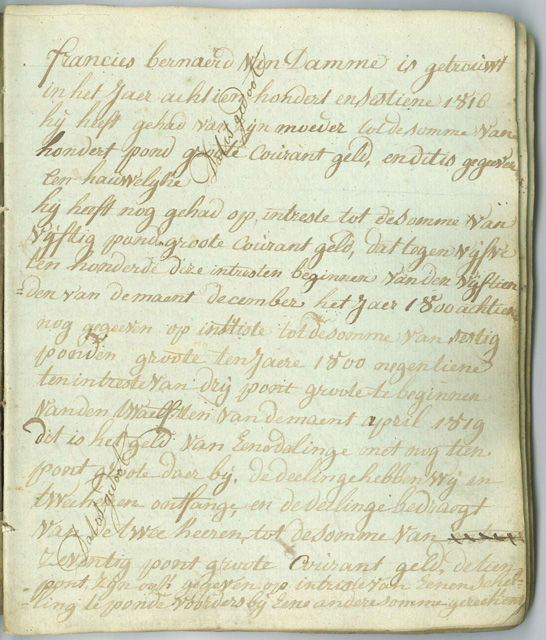 francies bernaerd van Damme is getrouwt
in het Jaer achtien hondert en sestiene 1816
hy heft gehad van zyn moeder tot de somme van
hondert pond groote Courant geld, en dit is gegeven
Een hauwelyke
hy heeft nog gehad op intreste tot de somme van
vyftig pond groote Courant geld, dat tegen vyfve
ten honderde dize intresten beginnen van den vyftien
=den van de maent december het Jaer 1800 achtien
nog gegeven op intreste tot de somme van sestig
ponden groote ten Jaere 1800 negentiene
ten intreste van dry pont groote te beginnen
van den twaelfsten van de maent april 1819
dit is het geld van Eene dalinge met nog tien
pont groote daer by, de deelinge hebben wy en
twee ontfange, en de deelinge bedraegt
van de twee heeren, tot de somme van
zeventig pont groote Courant geld, de tien
pont, zyn ook gegeven op intreste van Eenen schel-
=ling te ponde voorders by Eene andere somme gerekent
dat is gedoot
dat is gedoot